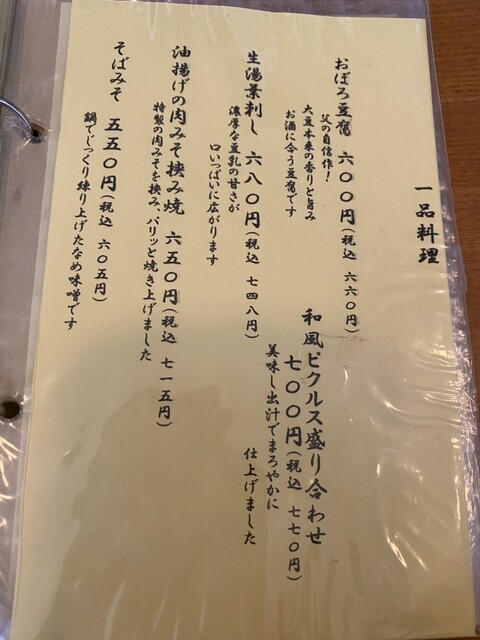 一品料理
おぼろ豆腐 六〇〇円(税込 六六〇円)
父の自信作!
大豆本来の香りと旨み
お酒に合う豆腐です
和風ピクルス盛り合わせ
七〇〇円(税込 七七〇円)
美味し出汁でまろやかに
仕上げました
生湯葉刺し 六八〇円(税込 七四八円)
濃厚な豆乳の甘さが
口いっぱいに広がります
油揚げの肉みそ挟み焼 六五〇円(税込 七一五円)
特製の肉みそを挟み、パリッと焼き上げました
そばみそ 五五〇円(税込 六〇五円)
鍋でじっくり練り上げたなめ味噌です